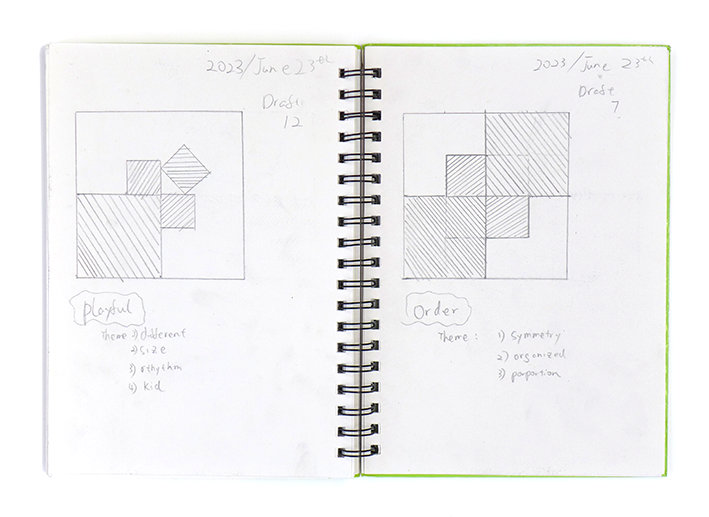 2023/June 23rd
Draft
12
Playful
Theme 1) different
2) size
3) rthythm
4) kid
2023/June 23rd
Draft
7
Order
Theme : 1) Symmetry
2) organized
3) poportion